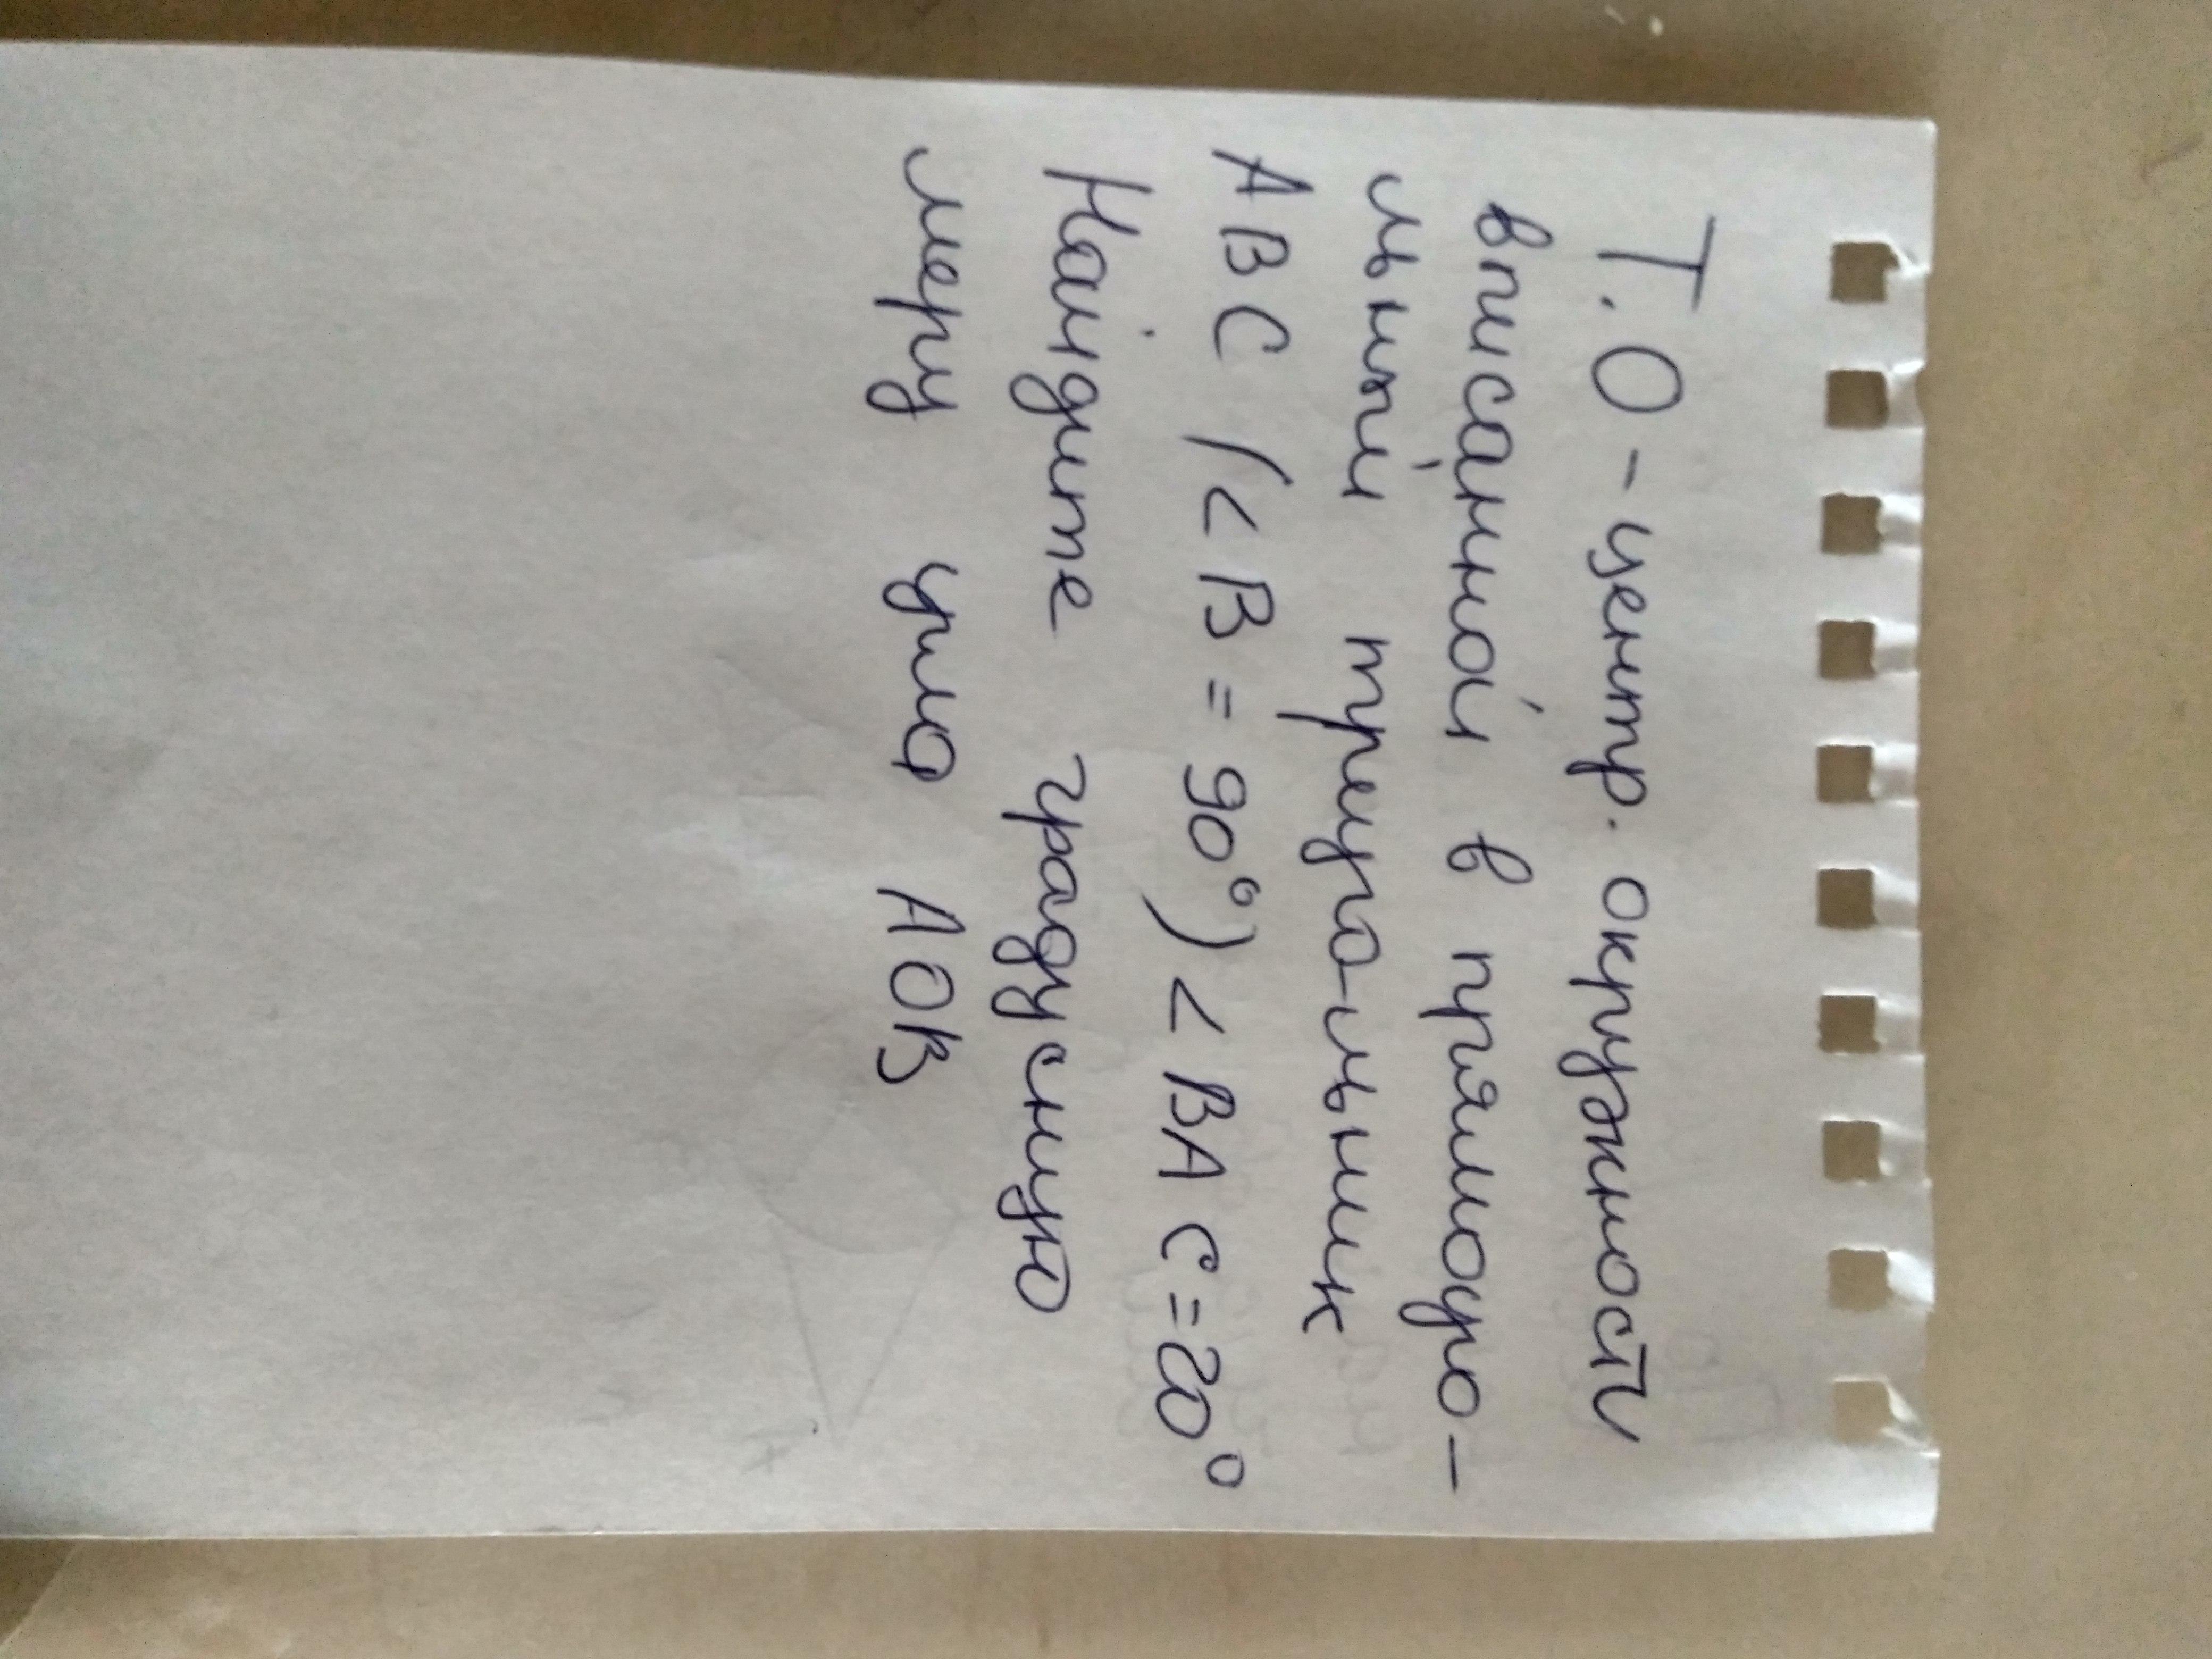 Т. О - центр. окружности
вписанной в прямоуго-
льный треугольник
АВС (< В = 90°) < ВАС = 20°
Найдите градусную
меру угла АОВ